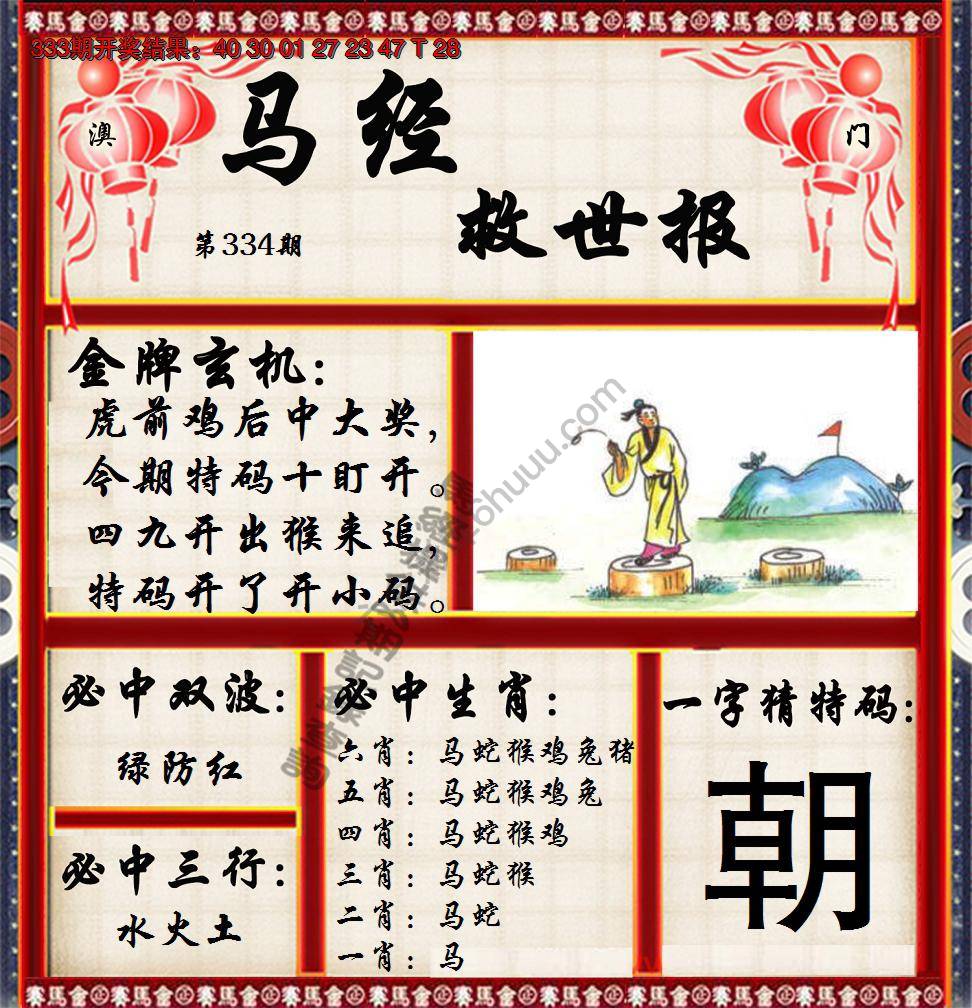 333期开奖结果：40 30 01 27 23 47 T 28
澳 门
马经
救世报
第334期
金牌玄机：
虎前鸡后中大奖，
今期特码十盯开。
四九开出猴来追，
特码开了开小码。
必中双波：
绿防红
必中三行：
水火土
必中生肖：
六肖：马蛇猴鸡兔猪
五肖：马蛇猴鸡兔
四肖：马蛇猴鸡
三肖：马蛇猴
二肖：马蛇
一肖：马
一字猜特码：
朝